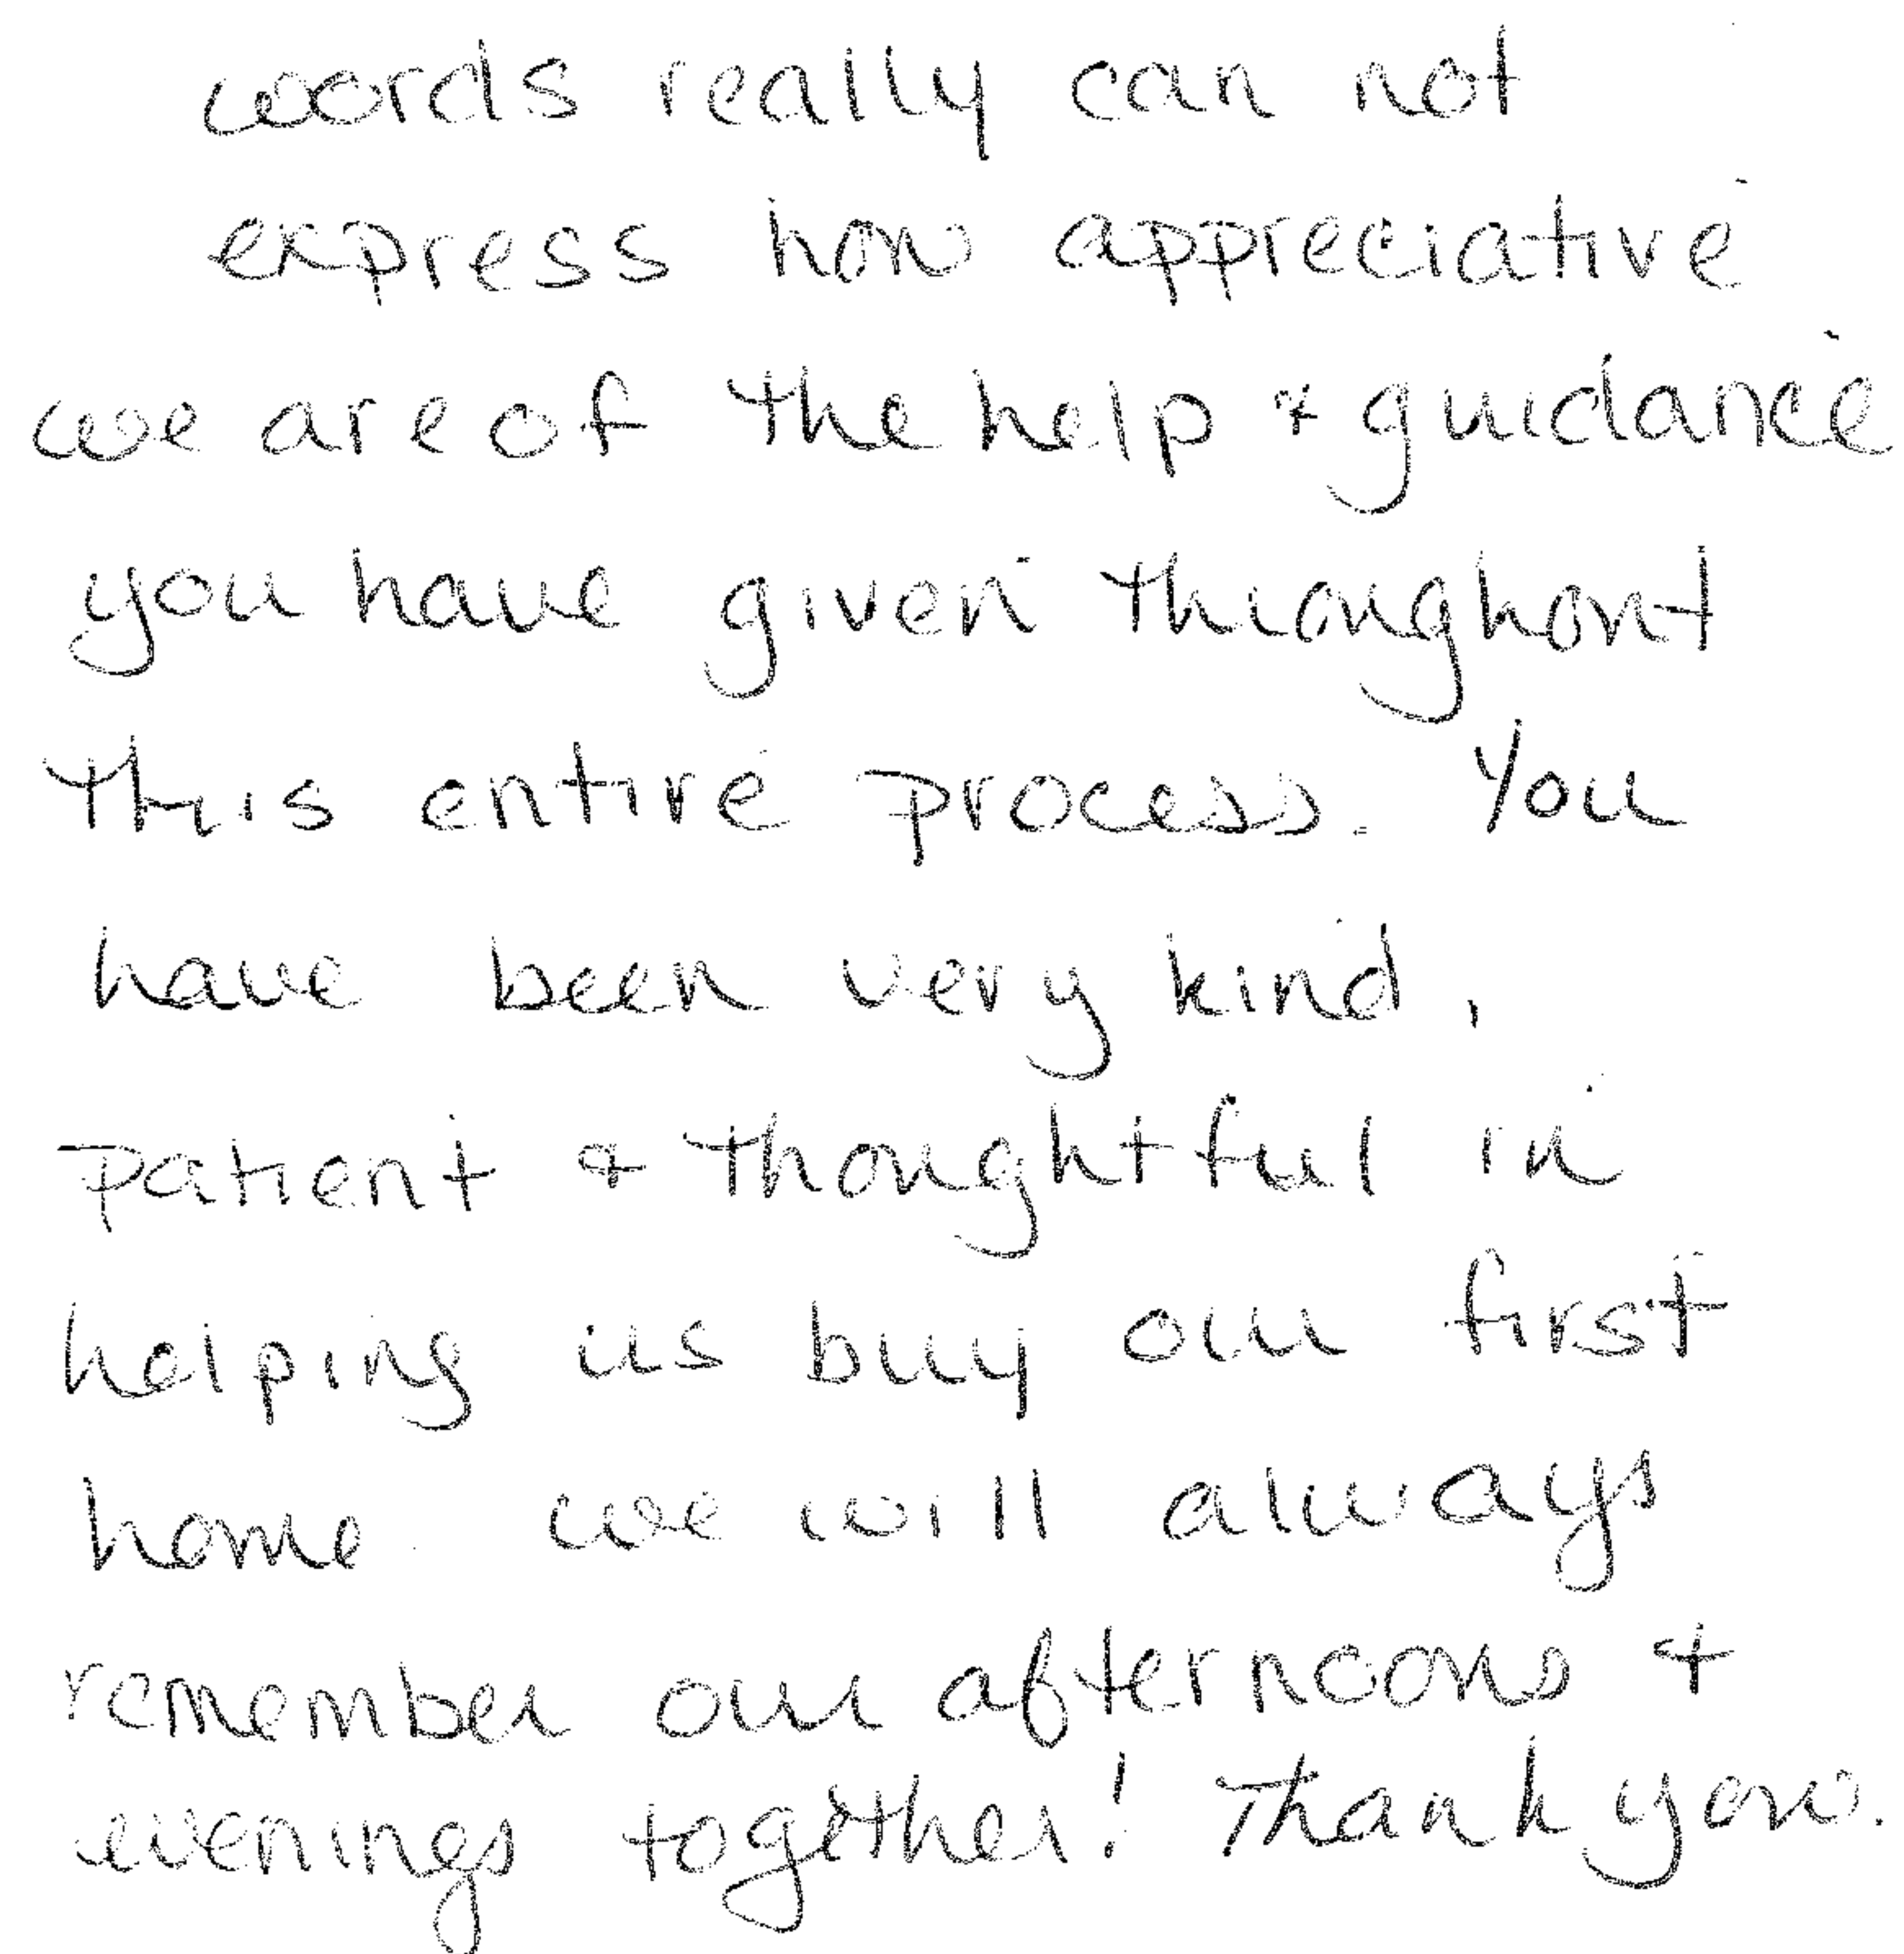 words really can not
express how appreciative
we are of the help & guidance
you have given throughout
this entire process. You
have been very kind,
patient & thoughtful in
helping us buy our first
home. we will always
remember our afternoons &
evenings together! Thank you.